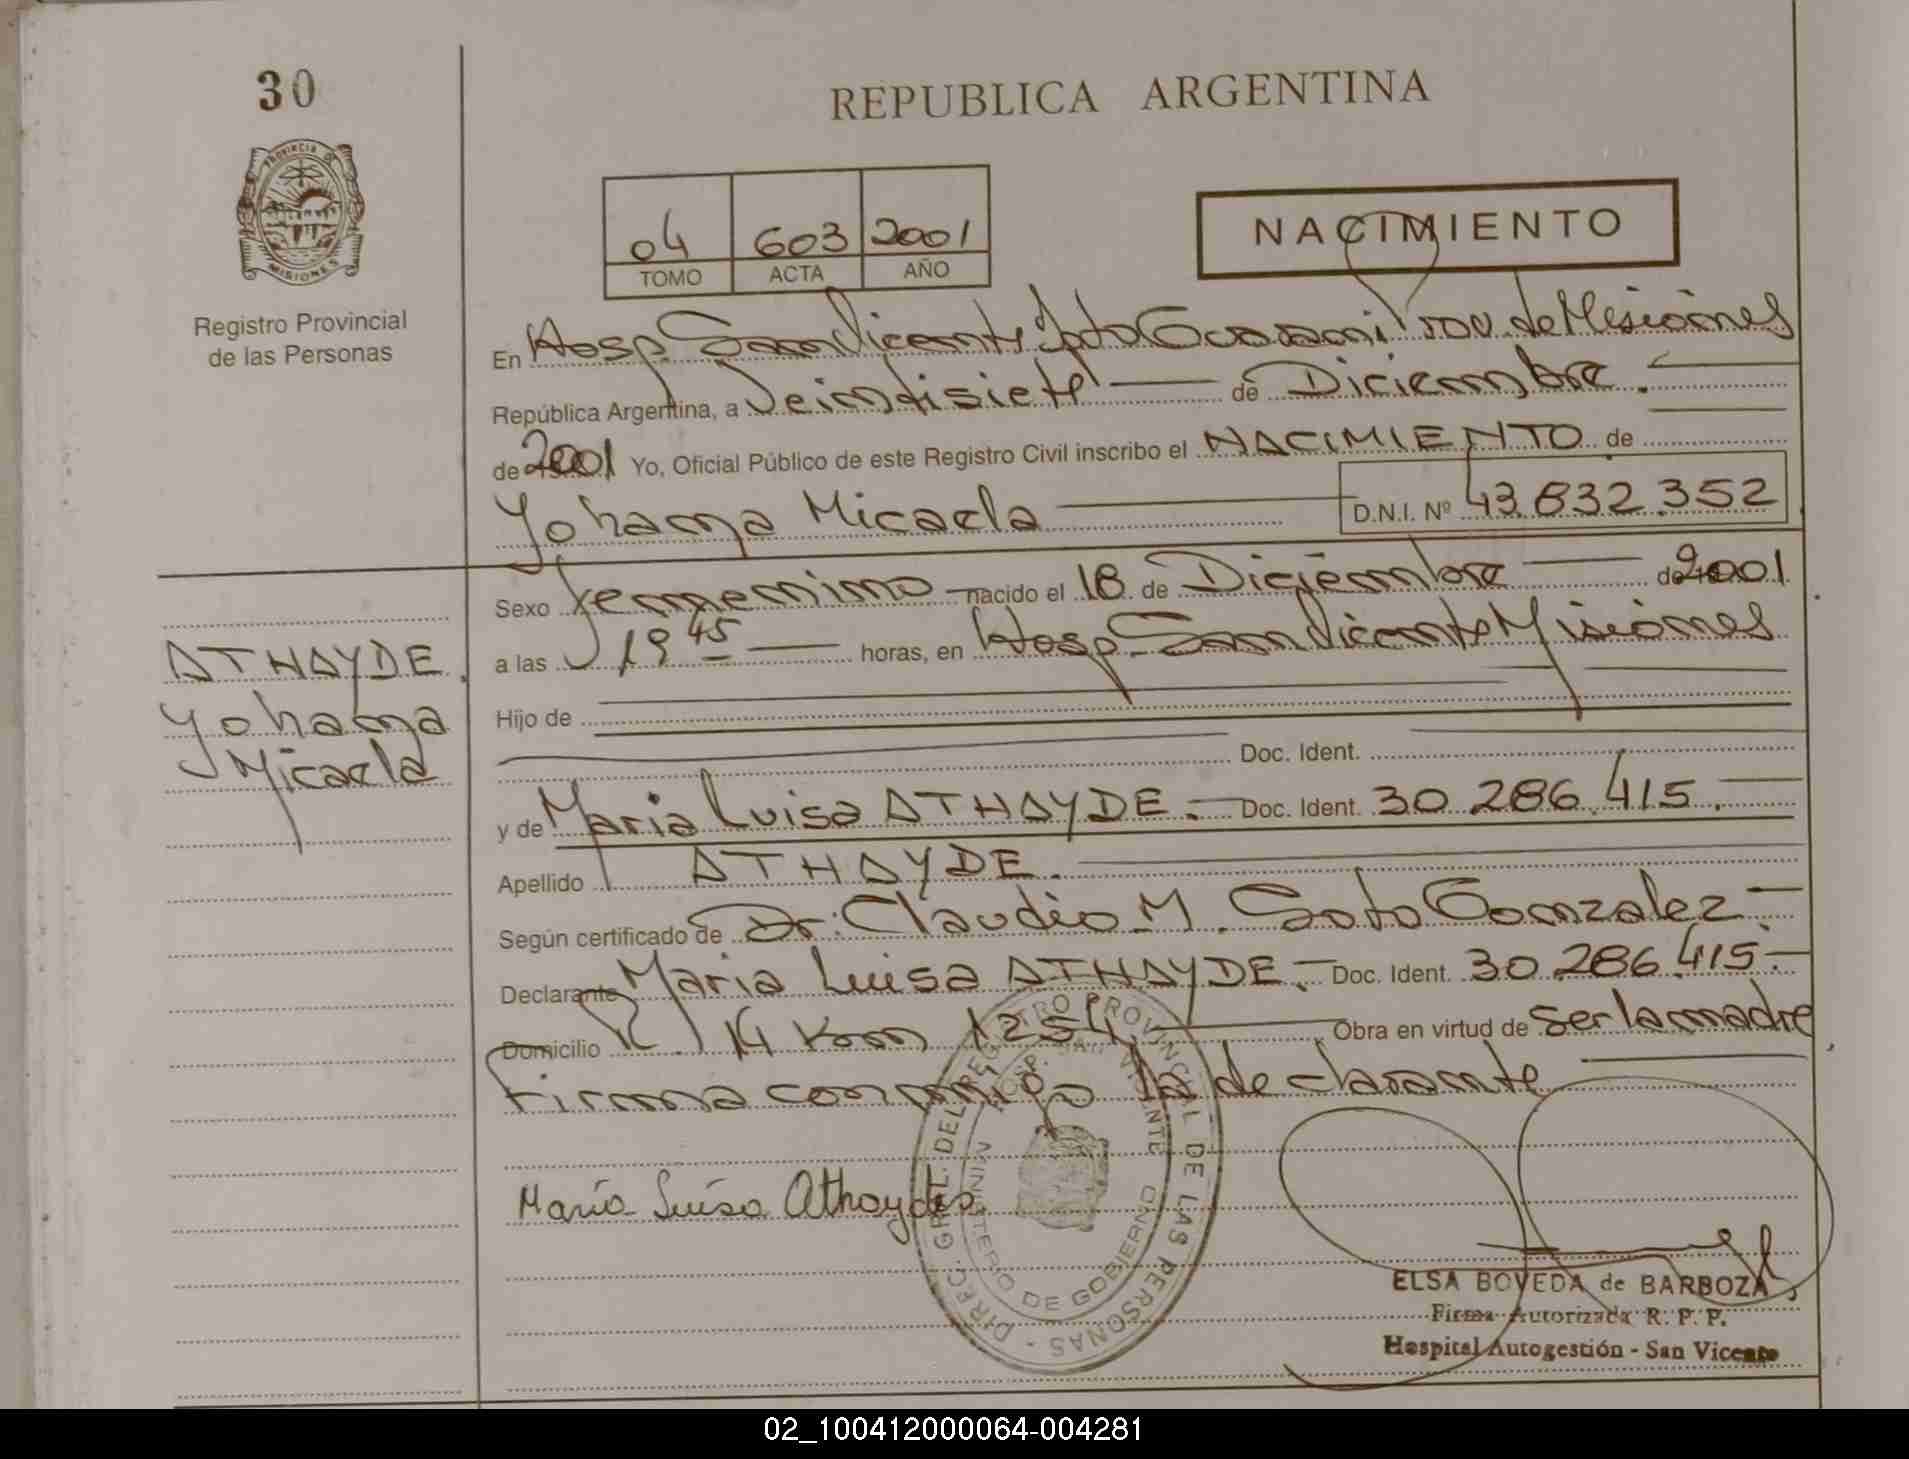 30
REPUBLICA ARGENTINA
PROVINCIA DE
MISIONES
Registro Provincial
de las Personas
04 603 2001
TOMO ACTA AÑO
NACIMIENTO
En Hosp. San Vicente Dpto Guarani Prov. de Misiones
República Argentina, a Veintisiete de Diciembre.
de 2001 Yo, Oficial Público de este Registro Civil inscribo el NACIMIENTO de
Yohana Micaela D.N.I. Nº 43.832.352
Sexo femenino nacido el 18 de Diciembre de 2001
a las 19 45 horas, en Hosp. San Vicente Misiones
Hijo de
Doc. Ident.
y de Maria Luisa ATHAYDE. Doc. Ident. 30.286.415.
Apellido ATHAYDE.
Según certificado de Dr. Claudio M. Soto Gonzalez
Declarante Maria Luisa ATHAYDE. Doc. Ident. 30.286.415.
Domicilio R 14 Km 1254 Obra en virtud de ser la madre
Firma conmigo la declarante
ATHAYDE.
Yohana
Micaela
María Luisa Athayde
DIREC. GRAL. DEL REGISTRO PROVINCIAL DE LAS PERSONAS
HOSP. SAN VICENTE
MINISTERIO DE GOBIERNO
ELSA BOVEDA de BARBOZA
Firma Autorizada R. P. P.
Hospital Autogestión - San Vicente
02_100412000064-004281